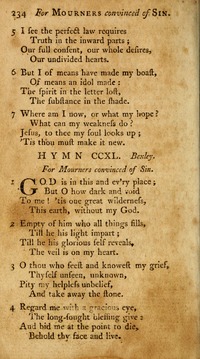 234 For MOURNERS convinced of SIN.
5 I see the perfect law requires
Truth in the inward parts ;
Our full consent, our whole desires,
Our undivided hearts.
6 But I of means have made my boast,
Of means an idol made :
The spirit in the letter lost,
The substance in the shade.
7 Where am I now, or what my hope?
What can my weakness do ?
Jesus, to thee my soul looks up ;
'Tis thou must make it new.
HYMN CCXL. Bexley.
For Mourners convinced of Sin.
1 GOD is in this and ev'ry place ;
But O how dark and void
To me ! 'tis one great wilderness,
This earth, without my God.
2 Empty of him who all things fills,
Till he his light impart ;
Till he his glorious self reveals,
The veil is on my heart.
3 O thou who seest and knowest my grief,
Thyself unseen, unknown,
Pity my helpless unbelief,
And take away the stone.
4 Regard me with a gracious eye,
The long-sought blessing give :
And bid me at the point to die,
Behold thy face and live.